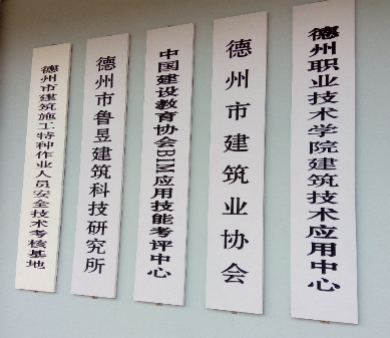 德州市建筑施工特种作业人员安全技术考核基地
德州市鲁昱建筑科技研究所
中国建设教育协会BIM应用技能考评中心
德州市建筑业协会
德州职业技术学院建筑技术应用中心